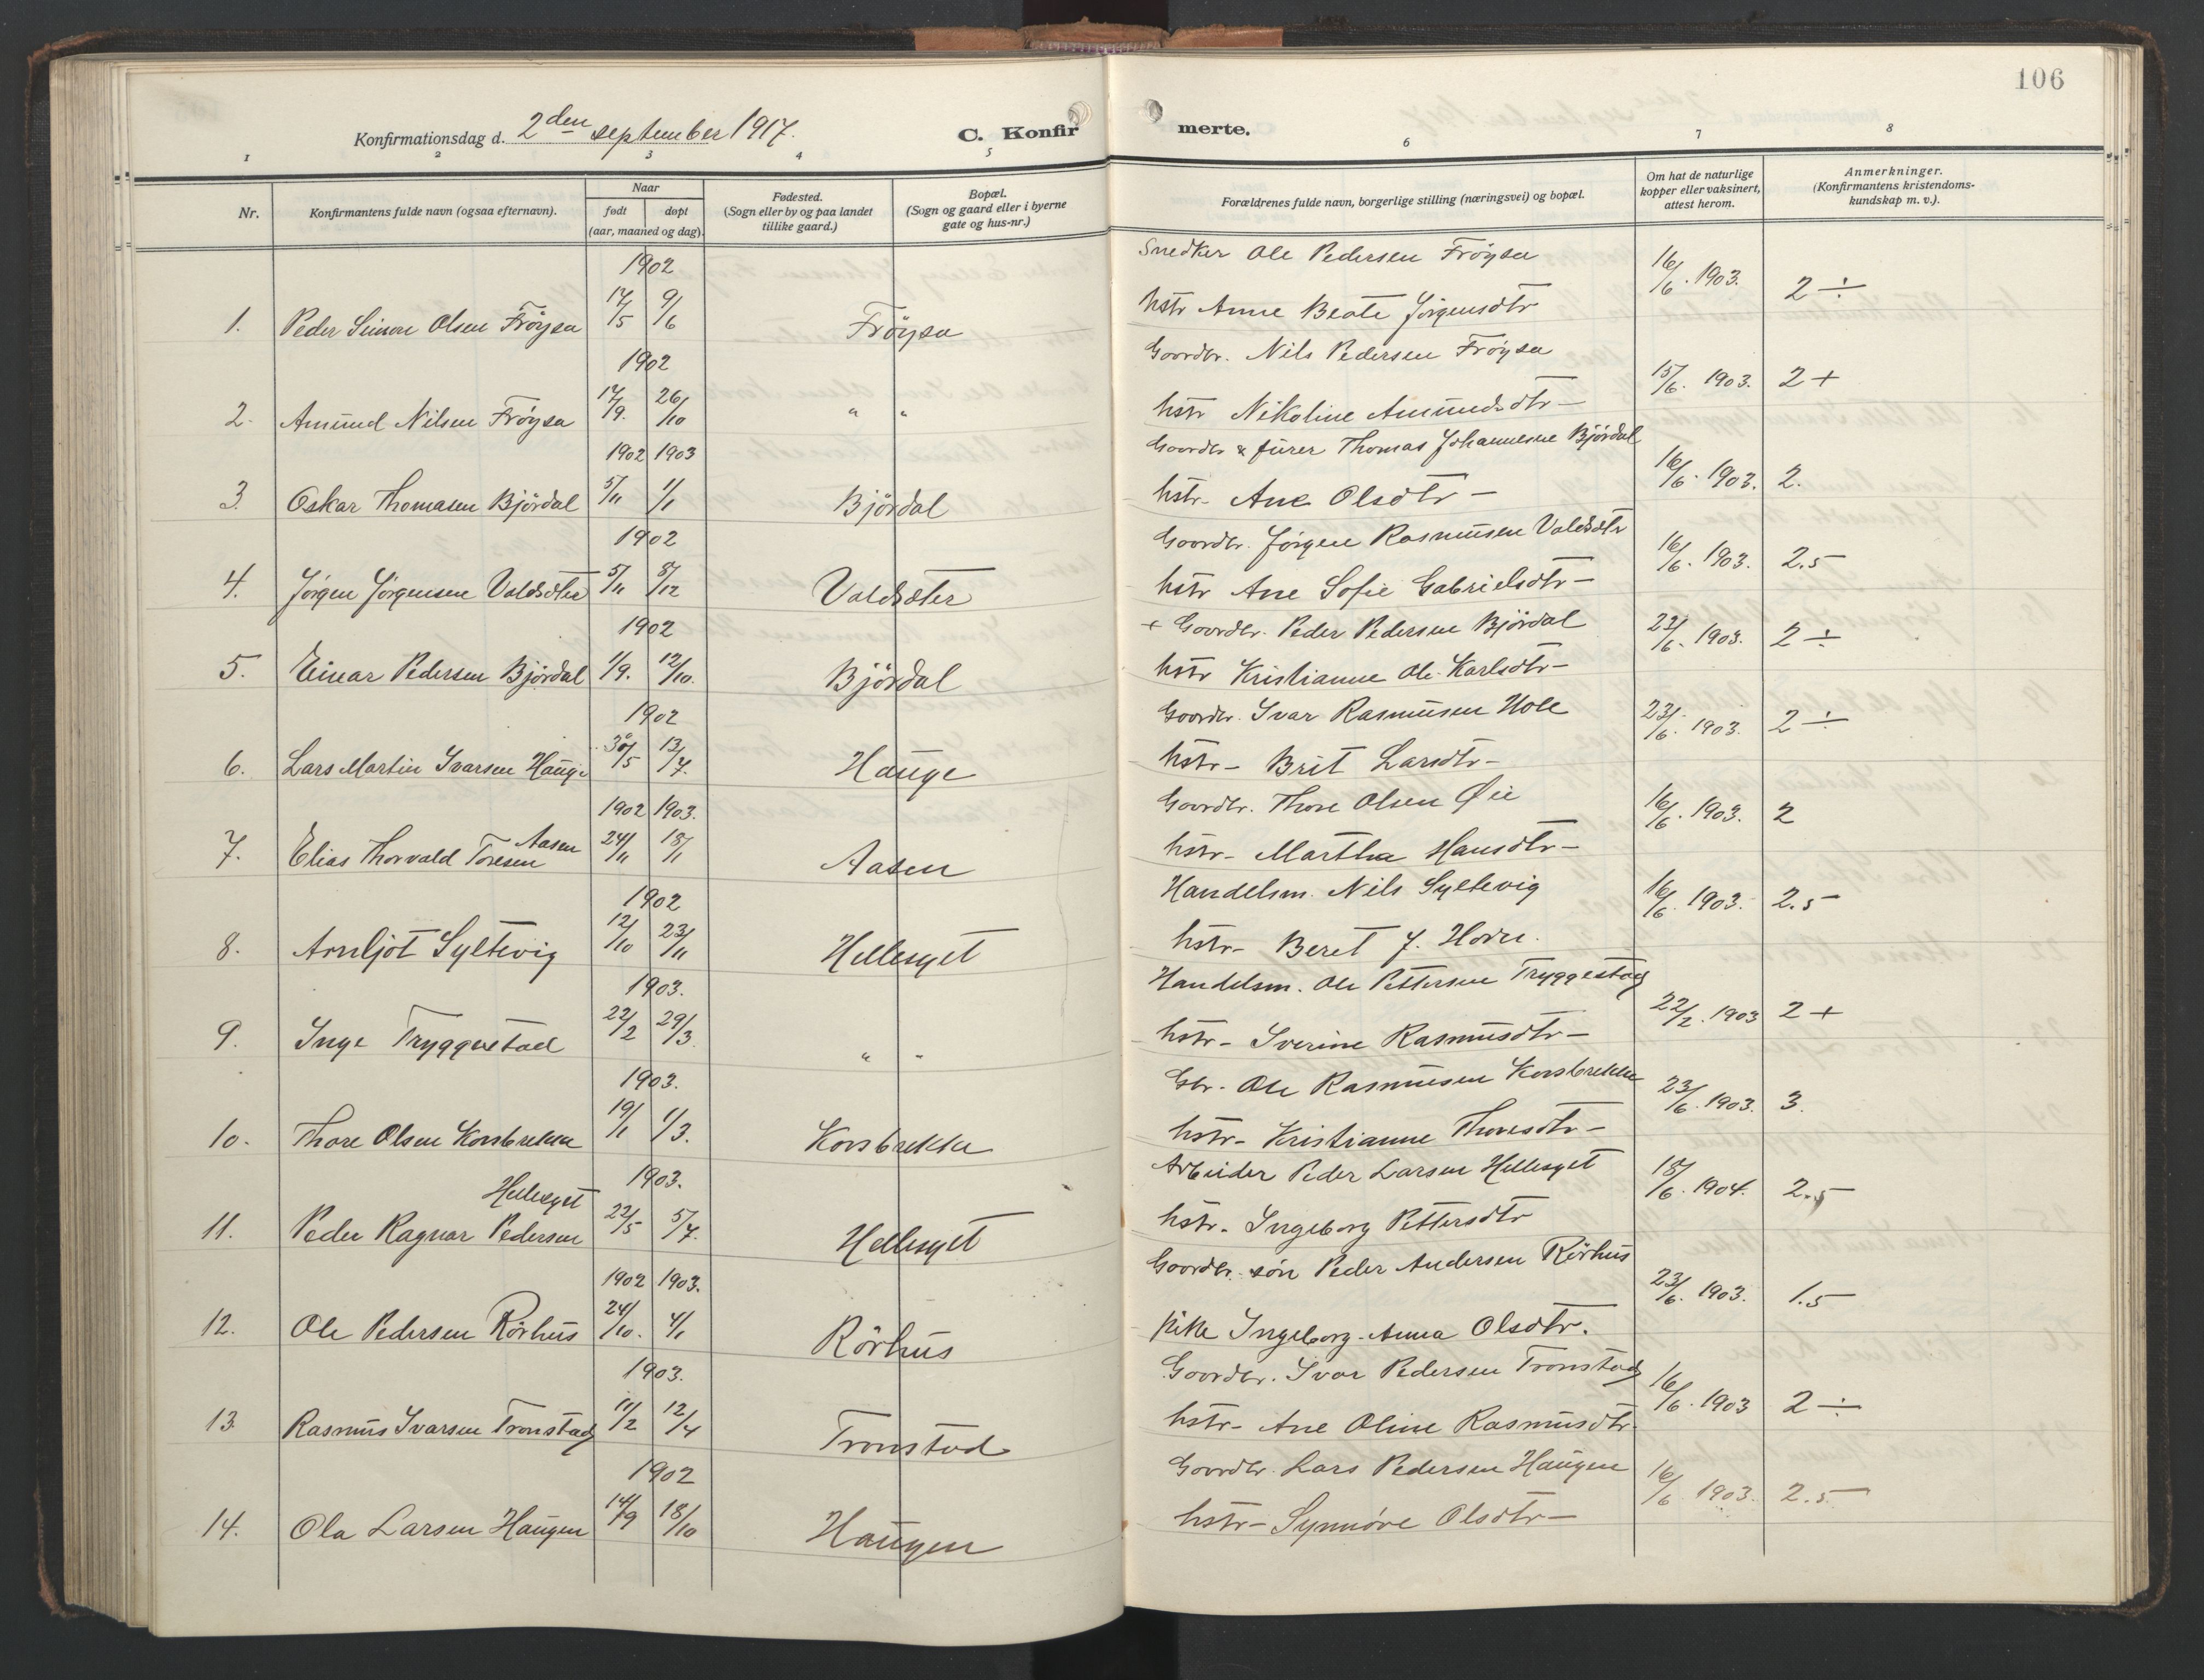 106
Konfirmationsdag d. 2den september 1917.
C. Konfirmerte.
1 2 3 4 5 6 7 8
Nr.
Konfirmantens fulde navn (ogsaa efternavn).
Naar
født døpt
(aar, maaned og dag).
Fødested.
(Sogn eller by og paa landet
tillike gaard.)
Bopæl.
(Sogn og gaard eller i byerne
gate og hus-nr.)
Forældrenes fulde navn, borgerlige stilling (næringsvei) og bopæl.
Om hat de naturlige
kopper eller vaksinert,
attest herom.
Anmerkninger.
(Konfirmantens kristendoms-
kundskap m. v.).
1902
Snedker Ole Pedersen Frøysa
1. Peder Simon Olsen Frøysa 17/5 9/6 Frøysa hstr Anne Beate Jørgensdtr 16/6. 1903. 2 ÷
1902
Goordbr. Nils Pedersen Frøysa
2. Amund Nilsen Frøysa 17/9. 26/10 " " hstr Nikoline Amundsdtr - 15/6. 1903. 2 +
1902 1903
Goordbr & fürer Thomas Johannesne Bjørdal
3. Oskar Thomasen Bjørdal 5/11 1/1 Bjørdal hstr- Ane Olsdtr - 16/6. 1903. 2.
1902
Goordbr. Jørgen Rasmusen Valdsdtr
4. Jørgen Jørgensen Valdsæter 5/11 8/12 Valdsæter hstr Ane Sofie Gabrielsdtr - 16/6. 1903. 2.5
1902
+ Goordbr. Peder Pedersen Bjørdal
5. Einar Pedersen Bjørdal 1/9. 12/10. Bjørdal hstr Kristianne Ole-Karlsdtr - 22/6. 1903. 2 ÷
1902
Goordbr. Ivar Rasmusen Hole
6. Lars Martin Ivarsen Hauge 30/5 13/7. Hauge hstr- Brit Larsdtr- 23/6. 1903. 2 ÷
1902 1903.
Goordbr. Thore Olsen Øie
Aasen
7. Elias Thorvald Toresen 24/11 18/1 Aasen hstr- Martha Hansdtr - 16/6. 1903. 2
1902
Handelsm. Nils Syltevig
8. Arnljot Syltevig 12/10 23/11 Hellesyet hstr- Beret J. Horn. 16/6 1903. 2.5
1903.
Handelsm. Ole Pettersen Tryggestad
9. Inge Tryggestad 22/2 29/3. " " hstr- Iverine Rasmusdtr - 22/2. 1903 2 +
1903.
Gbr. Ole Rasmusen Korsbrekke
10. Thore Olsen Korsbrekke 19/1 1/3. Korsbrekke hstr- Kristianne Thoresdtr - 23/6. 1903. 3.
1903.
Arbeider Peder Larsen Hellesyet
Hellesyet
11. Peder Ragnar Pedersen 22/5 5/7. Hellesyet hstr. Ingeborg Pettersdtr 18/6. 1904. 2.5
1902 1903.
Goordbr. søn Peder Andersen Rørhus
12. Ole Pedersen Rørhus 24/10. 4/1 Rørhus Pike Ingeborg-Anna Olsdtr. 23/6. 1903. 1.5
1903.
Goordbr. Ivar Pedersen Tronstad
13. Rasmus Ivarsen Tronstad 11/2 12/4 Tronstad hstr- Ane Oline Rasmusdtr. 16/6. 1903 2 ÷
1902
Goordbr. Lars Pedersen Haugen
14. Ola Larsen Haugen 14/9 18/10 Haugen hstr- Synnøve Olsdtr - 16/6 1903. 2.5